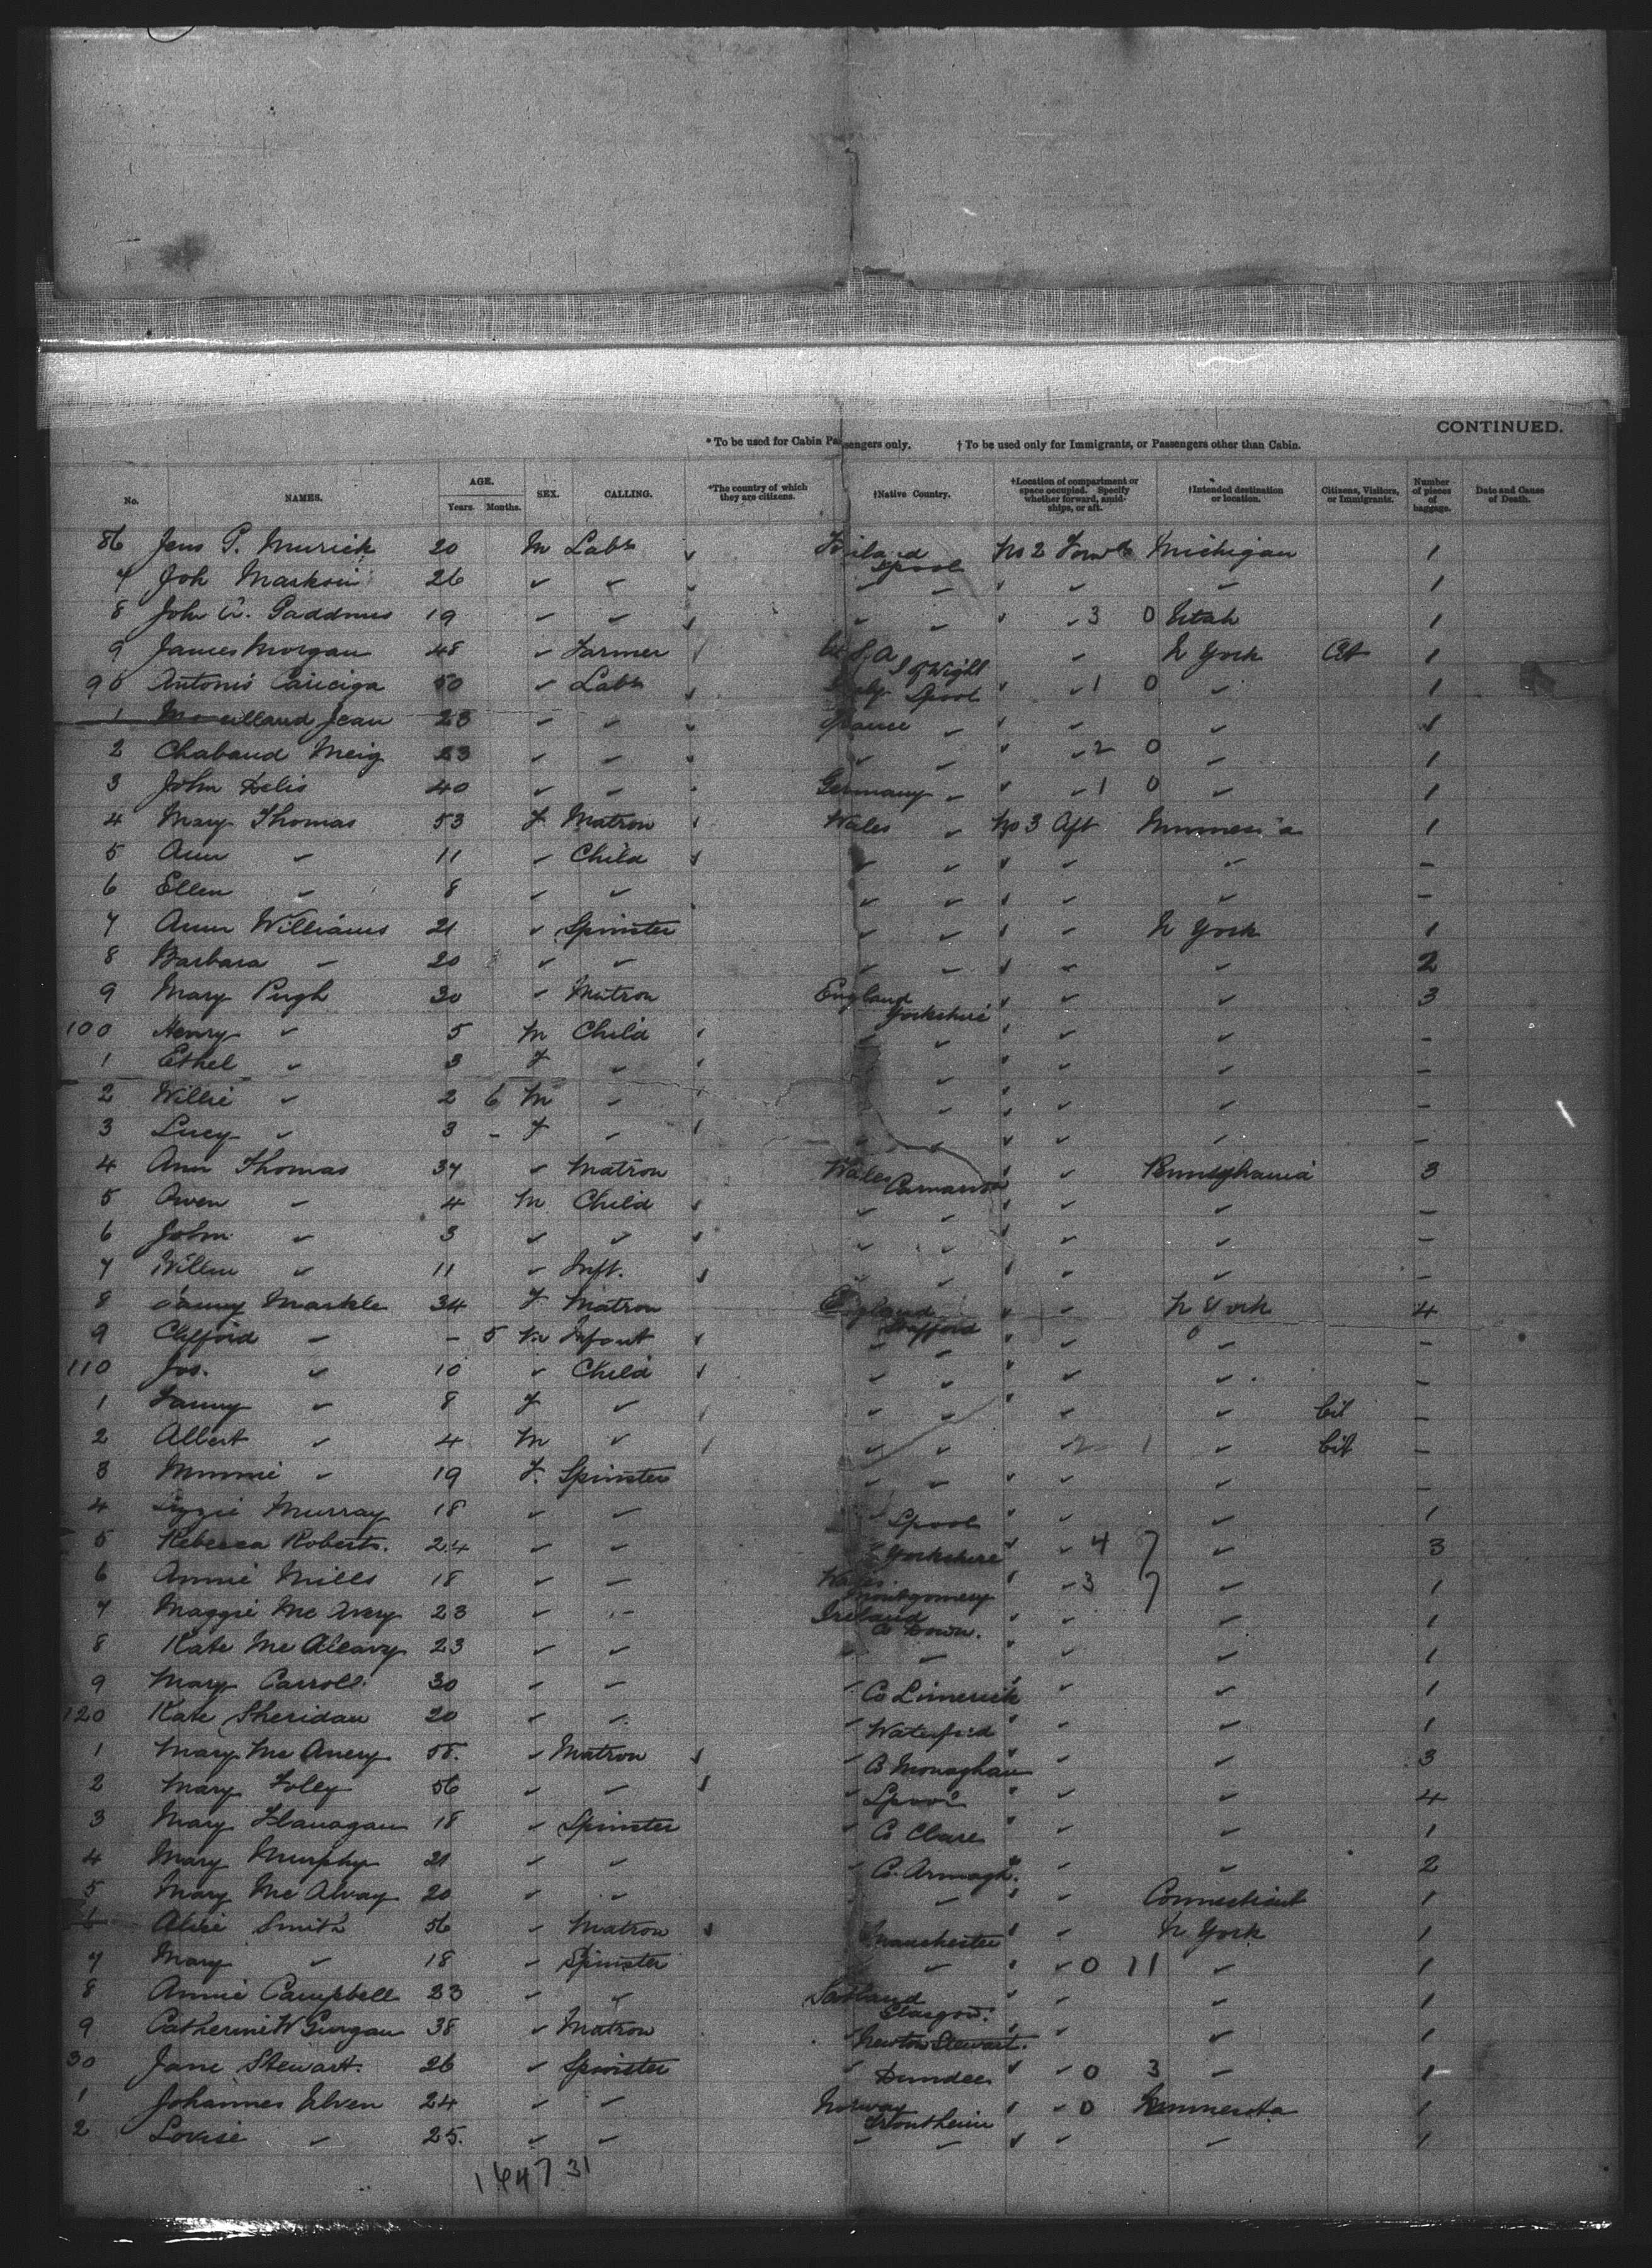 CONTINUED.
* To be used for Cabin Passengers only. † To be used only for Immigrants, or Passengers other than Cabin.
No. NAMES. AGE. Years. Months. SEX. CALLING. *The country of which they are citizens. †Native Country. †Location of compartment or space occupied. Specify whether forward, amidships, or aft. †Intended destination or location. Citizens, Visitors, or Immigrants. Number of pieces of baggage. Date and Cause of Death.
86 Jens P. 20 M Labr No 2 Michigan 1
7 Joh 26 ✓ ✓ ✓ ✓ 1
8 Joh A. 19 ✓ ✓ ✓ 3 0 Utah 1
9 James Morgan 48 ✓ Farmer U.S.A I of Wight ✓ N York 1
90 Antonio 50 ✓ Labr Italy Lpool ✓ 1 0 ✓ 1
1 Jean 23 ✓ ✓ France ✓ ✓ ✓ 1
2 Chaband Meig 23 ✓ ✓ ✓ ✓ 2 0 ✓ 1
3 John Delis 40 ✓ ✓ Germany ✓ ✓ 1 0 ✓ 1
4 Mary Thomas 53 F Matron Wales ✓ No 3 Aft 1
5 Ann ✓ 11 ✓ Child ✓ ✓ ✓ ✓ –
6 Ellen ✓ 8 ✓ ✓ ✓ ✓ ✓ ✓ –
7 Ann Williams 21 ✓ Spinster ✓ ✓ ✓ N York 1
8 Barbara ✓ 20 ✓ ✓ ✓ ✓ ✓ ✓ 2
9 Mary Pugh 30 ✓ Matron England Yorkshire ✓ ✓ 3
100 Henry ✓ 5 M Child ✓ ✓ ✓ ✓ –
1 Ethel ✓ 3 F ✓ ✓ ✓ ✓ –
2 Willie ✓ 2 6 M ✓ ✓ ✓ ✓ –
3 Lucy ✓ 3 – F ✓ ✓ ✓ ✓ –
4 Ann Thomas 37 ✓ Matron Wales Carnarvon ✓ Pennsylvania 3
5 Owen ✓ 4 M Child ✓ ✓ ✓ ✓ –
6 John ✓ 3 ✓ ✓ ✓ ✓ ✓ ✓ –
7 ✓ 11 ✓ Inft. ✓ ✓ ✓ ✓ –
8 Fanny Markle 34 F Matron England Stafford ✓ N York 4
9 Clifford ✓ – 5 M Infant ✓ ✓ ✓ ✓ –
110 Jos. ✓ 10 ✓ Child ✓ ✓ ✓ ✓ –
1 Fanny ✓ 8 F ✓ ✓ ✓ ✓ ✓ Cit –
2 Albert ✓ 4 M ✓ ✓ ✓ ✓ 2 1 ✓ Cit –
3 Minnie ✓ 19 F. Spinster ✓ ✓ ✓ ✓ –
4 Lizzie Murray 18 ✓ ✓ Lpool ✓ ✓ 1
5 Rebecca Roberts. 24 ✓ ✓ Yorkshire ✓ 4 7 ✓ 3
6 Annie Mills 18 ✓ ✓ Wales Montgomery ✓ 3 7 ✓ 1
7 Maggie Mc Avery 23 ✓ ✓ Ireland Co Down. ✓ ✓ 1
8 Kate Mc Aleavy 23 ✓ ✓ ✓ ✓ ✓ 1
9 Mary Carroll 30 ✓ ✓ ✓ Co Limerick ✓ ✓ 1
120 Kate Sheridan 20 ✓ ✓ ✓ Waterford ✓ ✓ 1
1 Mary Mc Anery 55. ✓ Matron ✓ Co Monaghan ✓ ✓ 3
2 Mary Foley 56 ✓ ✓ ✓ Lpool ✓ ✓ 4
3 Mary Flanagan 18 ✓ Spinster ✓ Co Clare ✓ ✓ 1
4 Mary Murphy 21 ✓ ✓ ✓ Co. Armagh. ✓ ✓ 2
5 Mary Mc Alvay 20 ✓ ✓ ✓ ✓ Connecticut 1
6 Alice Smith 56 ✓ Matron Manchester ✓ N York 1
7 Mary ✓ 18 ✓ Spinster ✓ ✓ 0 11 ✓ 1
8 Annie Campbell 23 ✓ ✓ Scotland Glasgow. ✓ ✓ 1
9 Catherine W 38 ✓ Matron ✓ Newton Stewart. ✓ ✓ 1
30 Jane Stewart. 26 ✓ Spinster ✓ Dundee ✓ 0 3 ✓ 1
1 Johannes Elven 24 ✓ ✓ Norway Trontheim ✓ 0 Minnesota 1
2 Lovise ✓ 25. ✓ ✓ ✓ ✓ ✓ ✓ 1